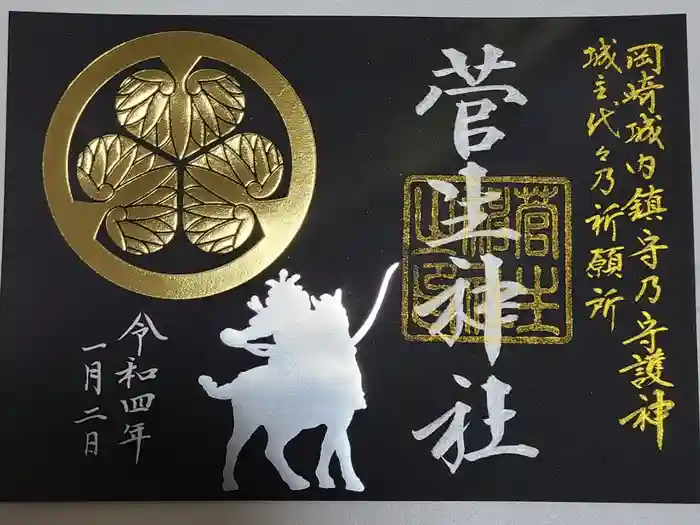 岡崎城内鎮守乃守護神
城主代々乃祈願所
菅生神社
菅生
神社
之印
令和四年
一月二日